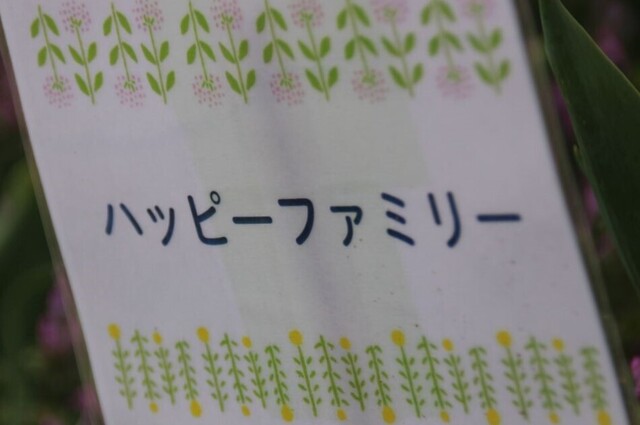 ハッピーファミリー